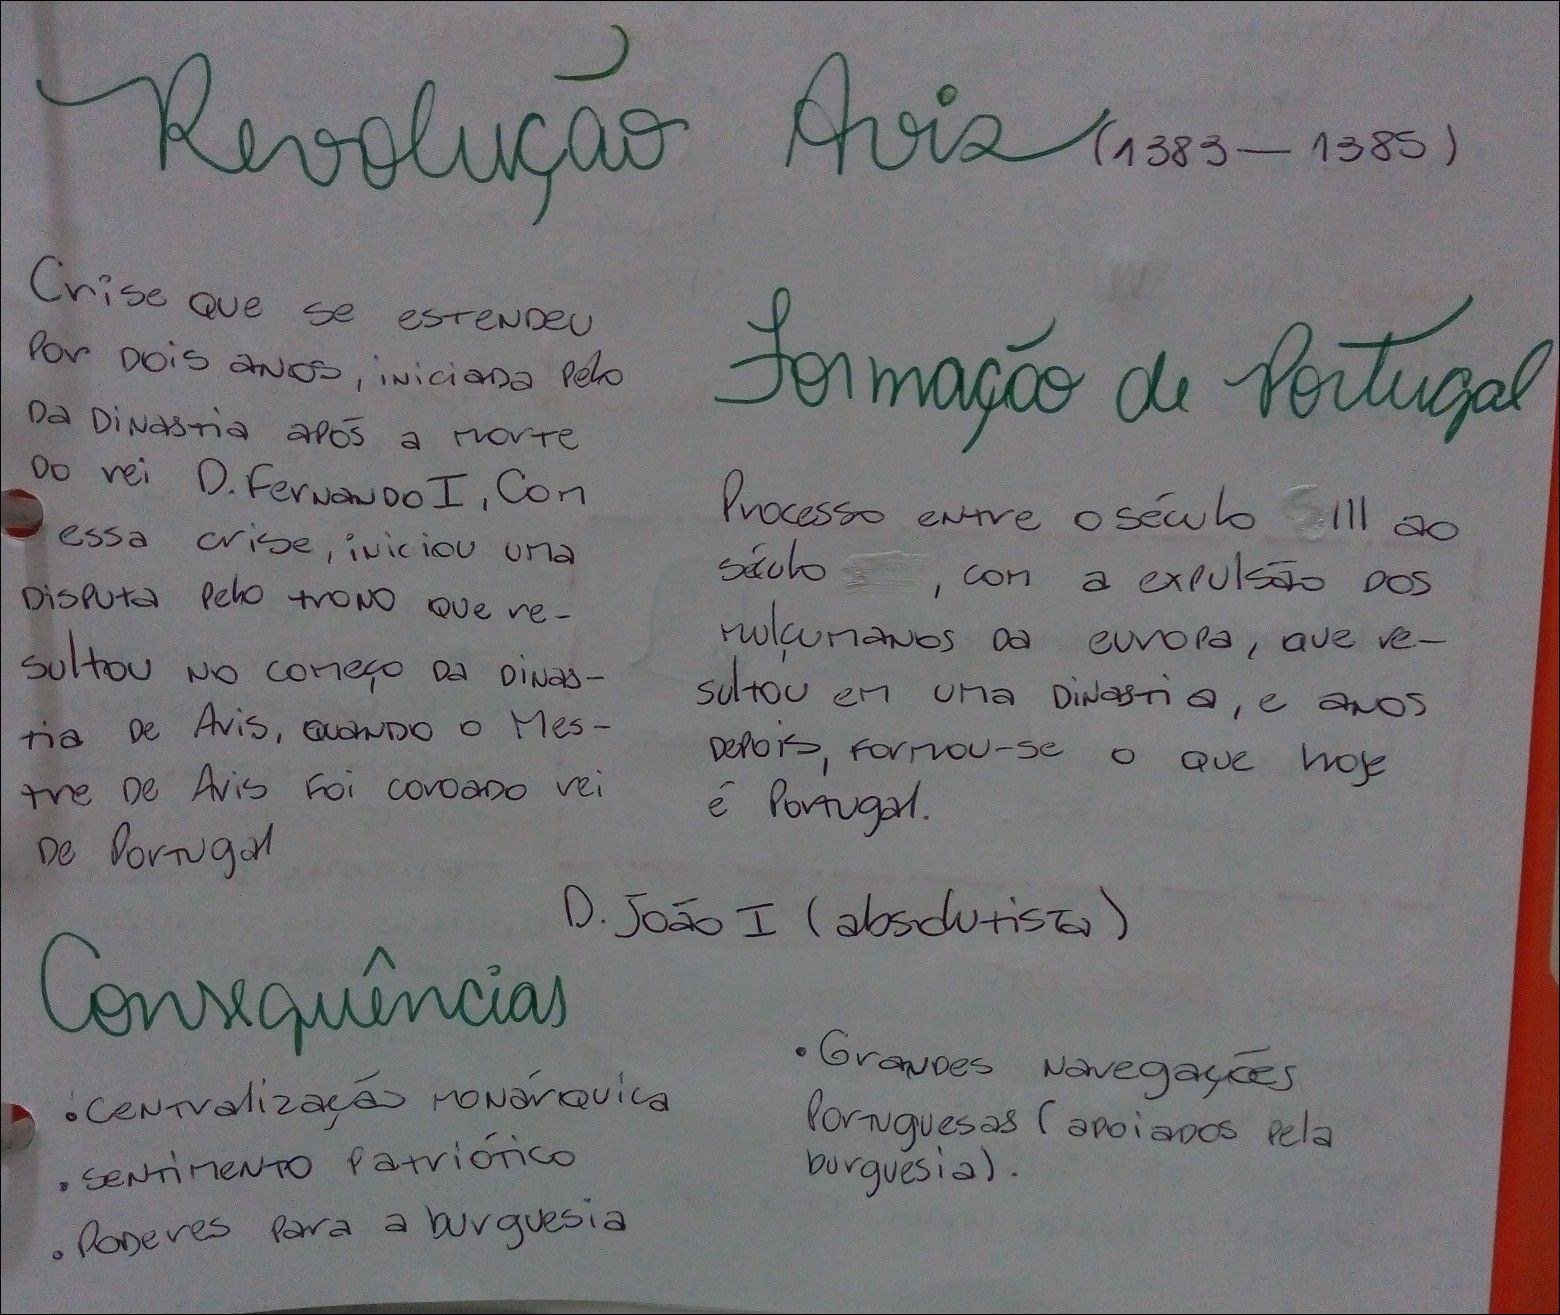 Revolução Avis (1383 — 1385)
Crise que se estendeu
por dois anos, iniciada pelo
da dinastia após a morte
do rei D. Fernando I, Com
essa crise, iniciou uma
disputa pelo trono que re-
sultou no começo da dinas-
tia de Avis, quando o Mes-
tre de Avis foi coroado rei
de Portugal
Formação de Portugal
Processo entre o século III ao
século , com a expulsão dos
mulçumanos da europa, que re-
sultou em uma dinastia, e anos
depois, formou-se o que hoje
é Portugal.
D. João I (absolutista)
Consequências
• centralização monárquica
• sentimento patriótico
• Poderes para a burguesia
• Grandes navegações
Portuguesas (apoiados pela
burguesia).